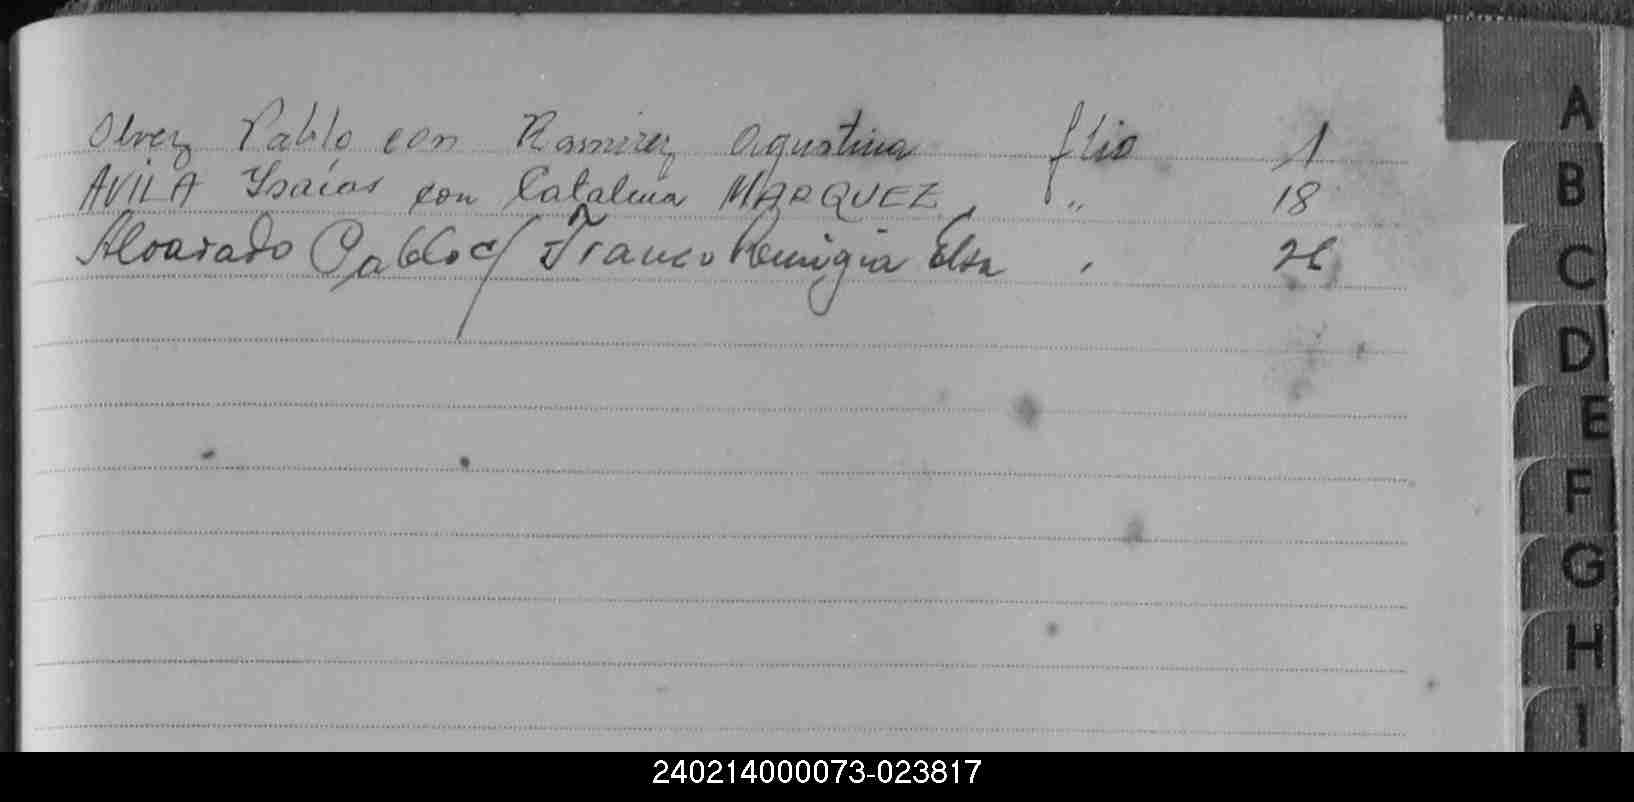 Olvez Pablo con Ramirez Agustina flio 1
AVILA Ysaías con Catalina MARQUEZ, " 18
Alvarado Pablo c/ Franco Remigia Elsa " 26
A
B
C
D
E
F
G
H
I
240214000073-023817